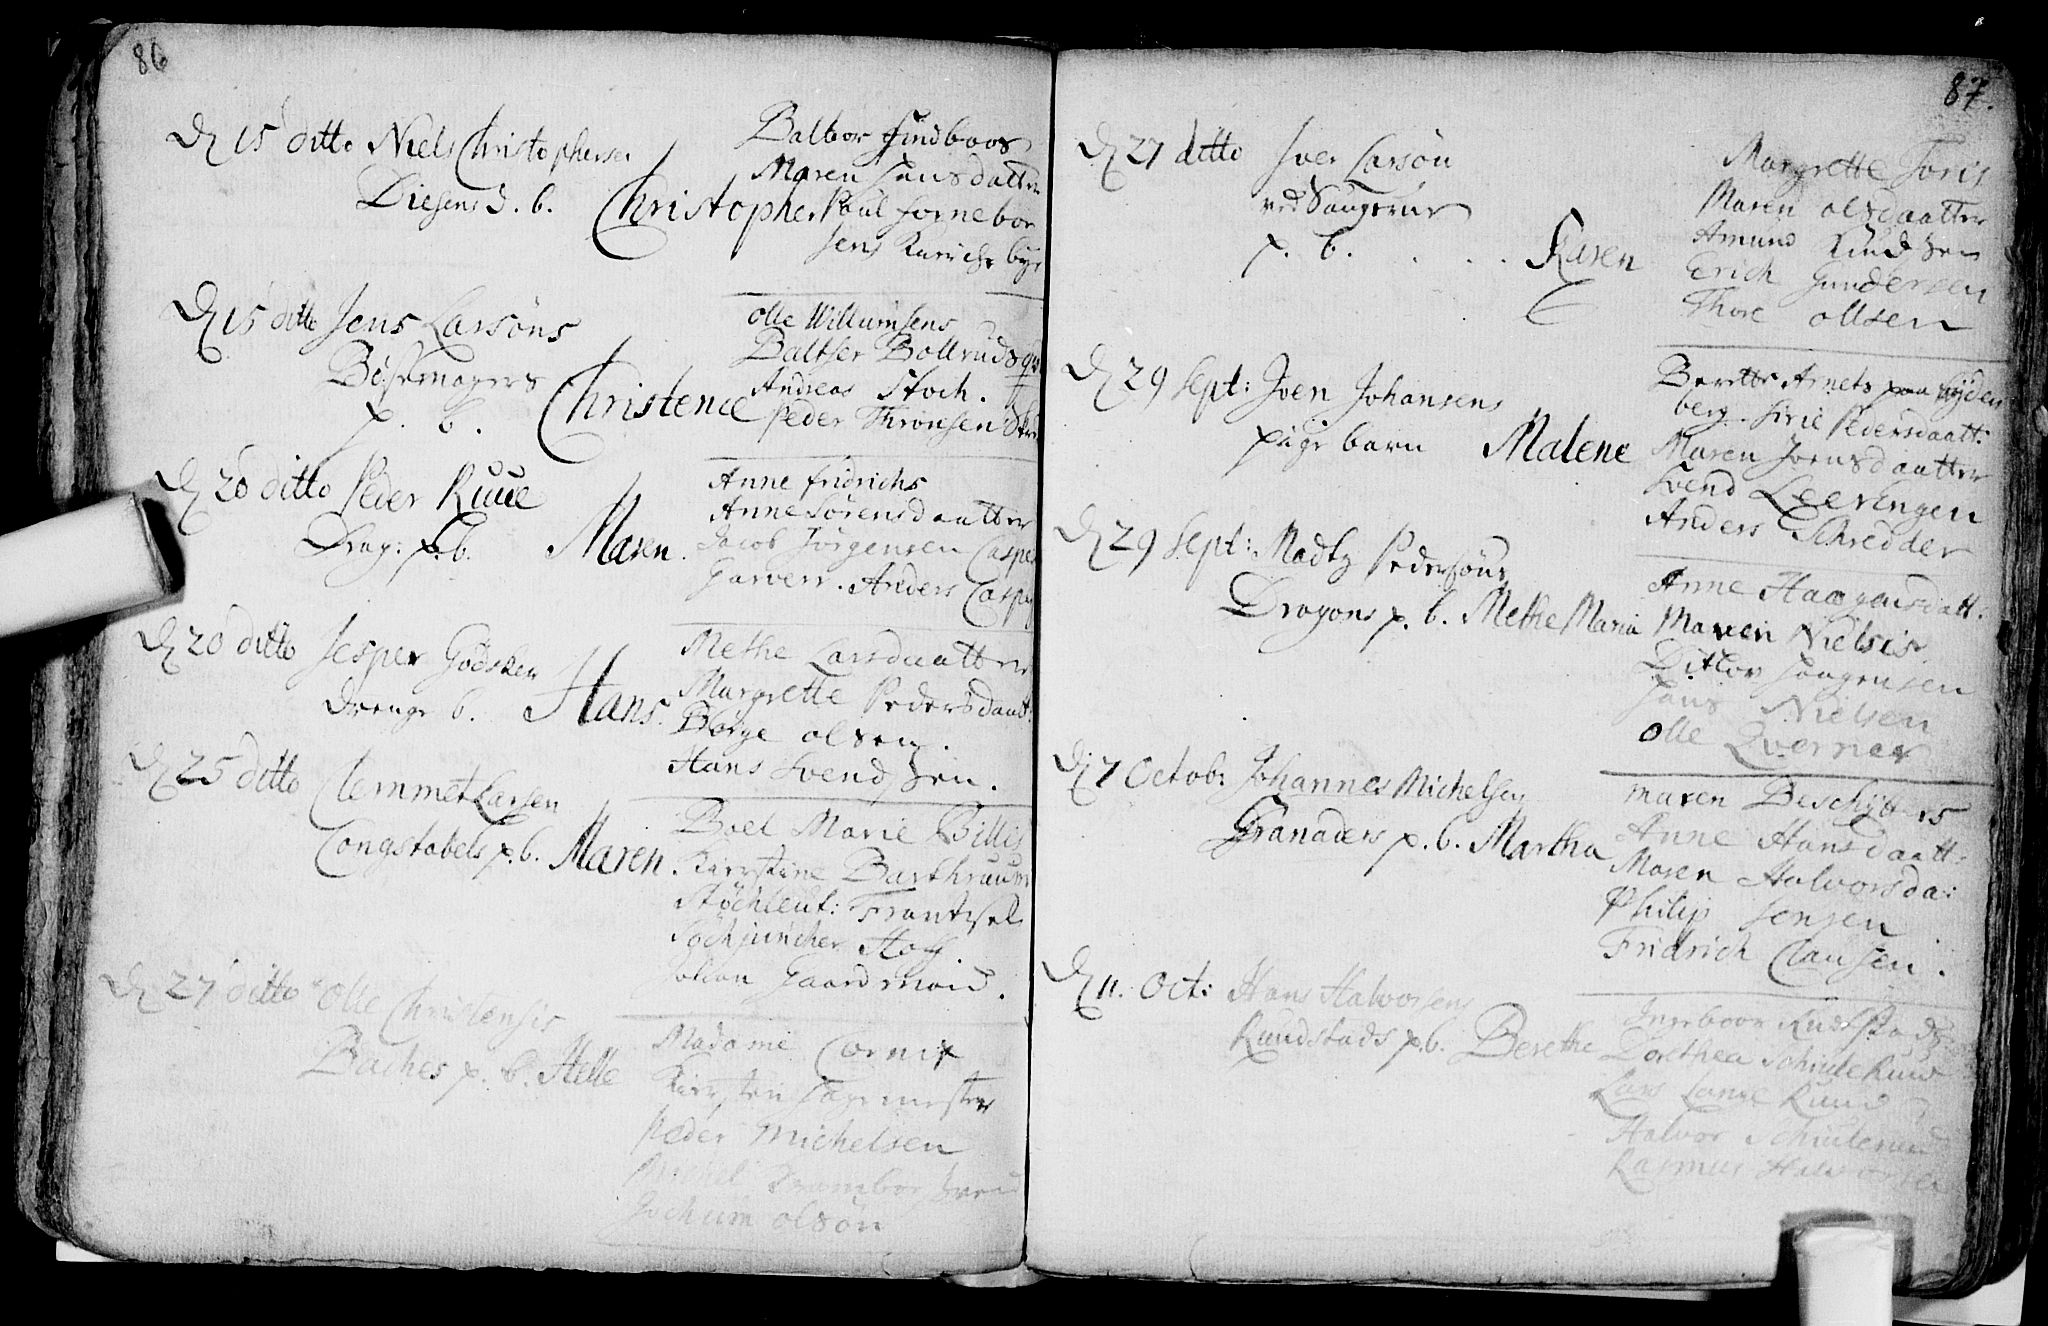 86
D 15 ditto Niels Christophersen
Diesens d. b. Christopher
Baltzor Findboos
Maren Hansdatter
Poul Fornebor
Jens
D 15 ditto Jens Larsöns
Bösemagers
p. b. Christence
Olle Willumsens
Baltser Bollruds
Andreas Stoch.
Peder Thronsen
D 20 ditto Peder Ruue
Drag: p.b. Maren.
Anne Fridrichs
Anne Sörensdaatter
Jacob Jörgensen Casper
Garverr. Anders Casper
D 20 ditto Jesper Godsken
drenge b. Hans.
Methe Larsdaatter
Margrette Pedersdaat:
Börge olsen.
Hans Svendsen.
D 25 ditto Clemmet Larsen
Congstabels p.b. Maren.
Boel Marie Billis
Kierstine Barthruum
Stöchleut: Frantzsel
Töchjuncher Hoff.
Johan Gaardmand.
D 27 ditto Olle Christensis
Baches p. b. Helle
Madame Cornix
Kiersten
Peder Michelsen
Michel
Jochum olsön
87.
D 27 ditto Iver Larsön
ved Saugerne
p. b. . . . Karen
Margrette Joris
Maren olsdaatter
Amund Knudsen
Erich Gundersen
Thore ollsen
D 29 Sept: Joen Johansens
pige barn Malene
Berethe Arnets paa Ryden
berg. Sirie Pedersdaatt:
Maren Joensdaatter
Svend Leerengen
Anders Schredder
D 29 Sept: Madtz Pedersöns
Dragons p. b. Methe Maria
Anne Haagensdatt:
Maren Nielsis.
Ditlov Haagensen
Hans Nielsen
Olle Qverner
D 7 Octob: Johannes Michelsen
Granaders p. b. Martha
Maren Beschÿtters
Anne Hansdaatt:
Maren Halvorsda:
Philip Jensen
Fridrich Clausen.
D 11. Oct: Hans Halvorsens
Rundstads p.b. Berethe
Ingeboor Rudstads
Dorethea Schulerud
Lars Lange Ruud
Halvor Schulerud
Rasmus Halvorsen